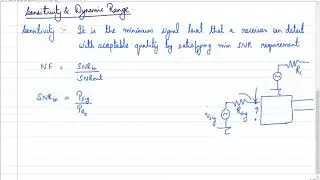 Sensitivity & Dynamic Range
Sensitivity :- It is the minimum signal level that a receiver can detect
with acceptable quality by satisfying min SNR requirement
NF = SNRin / SNRout
SNRin = Psig /
Rs
Rsig
Vsig
?